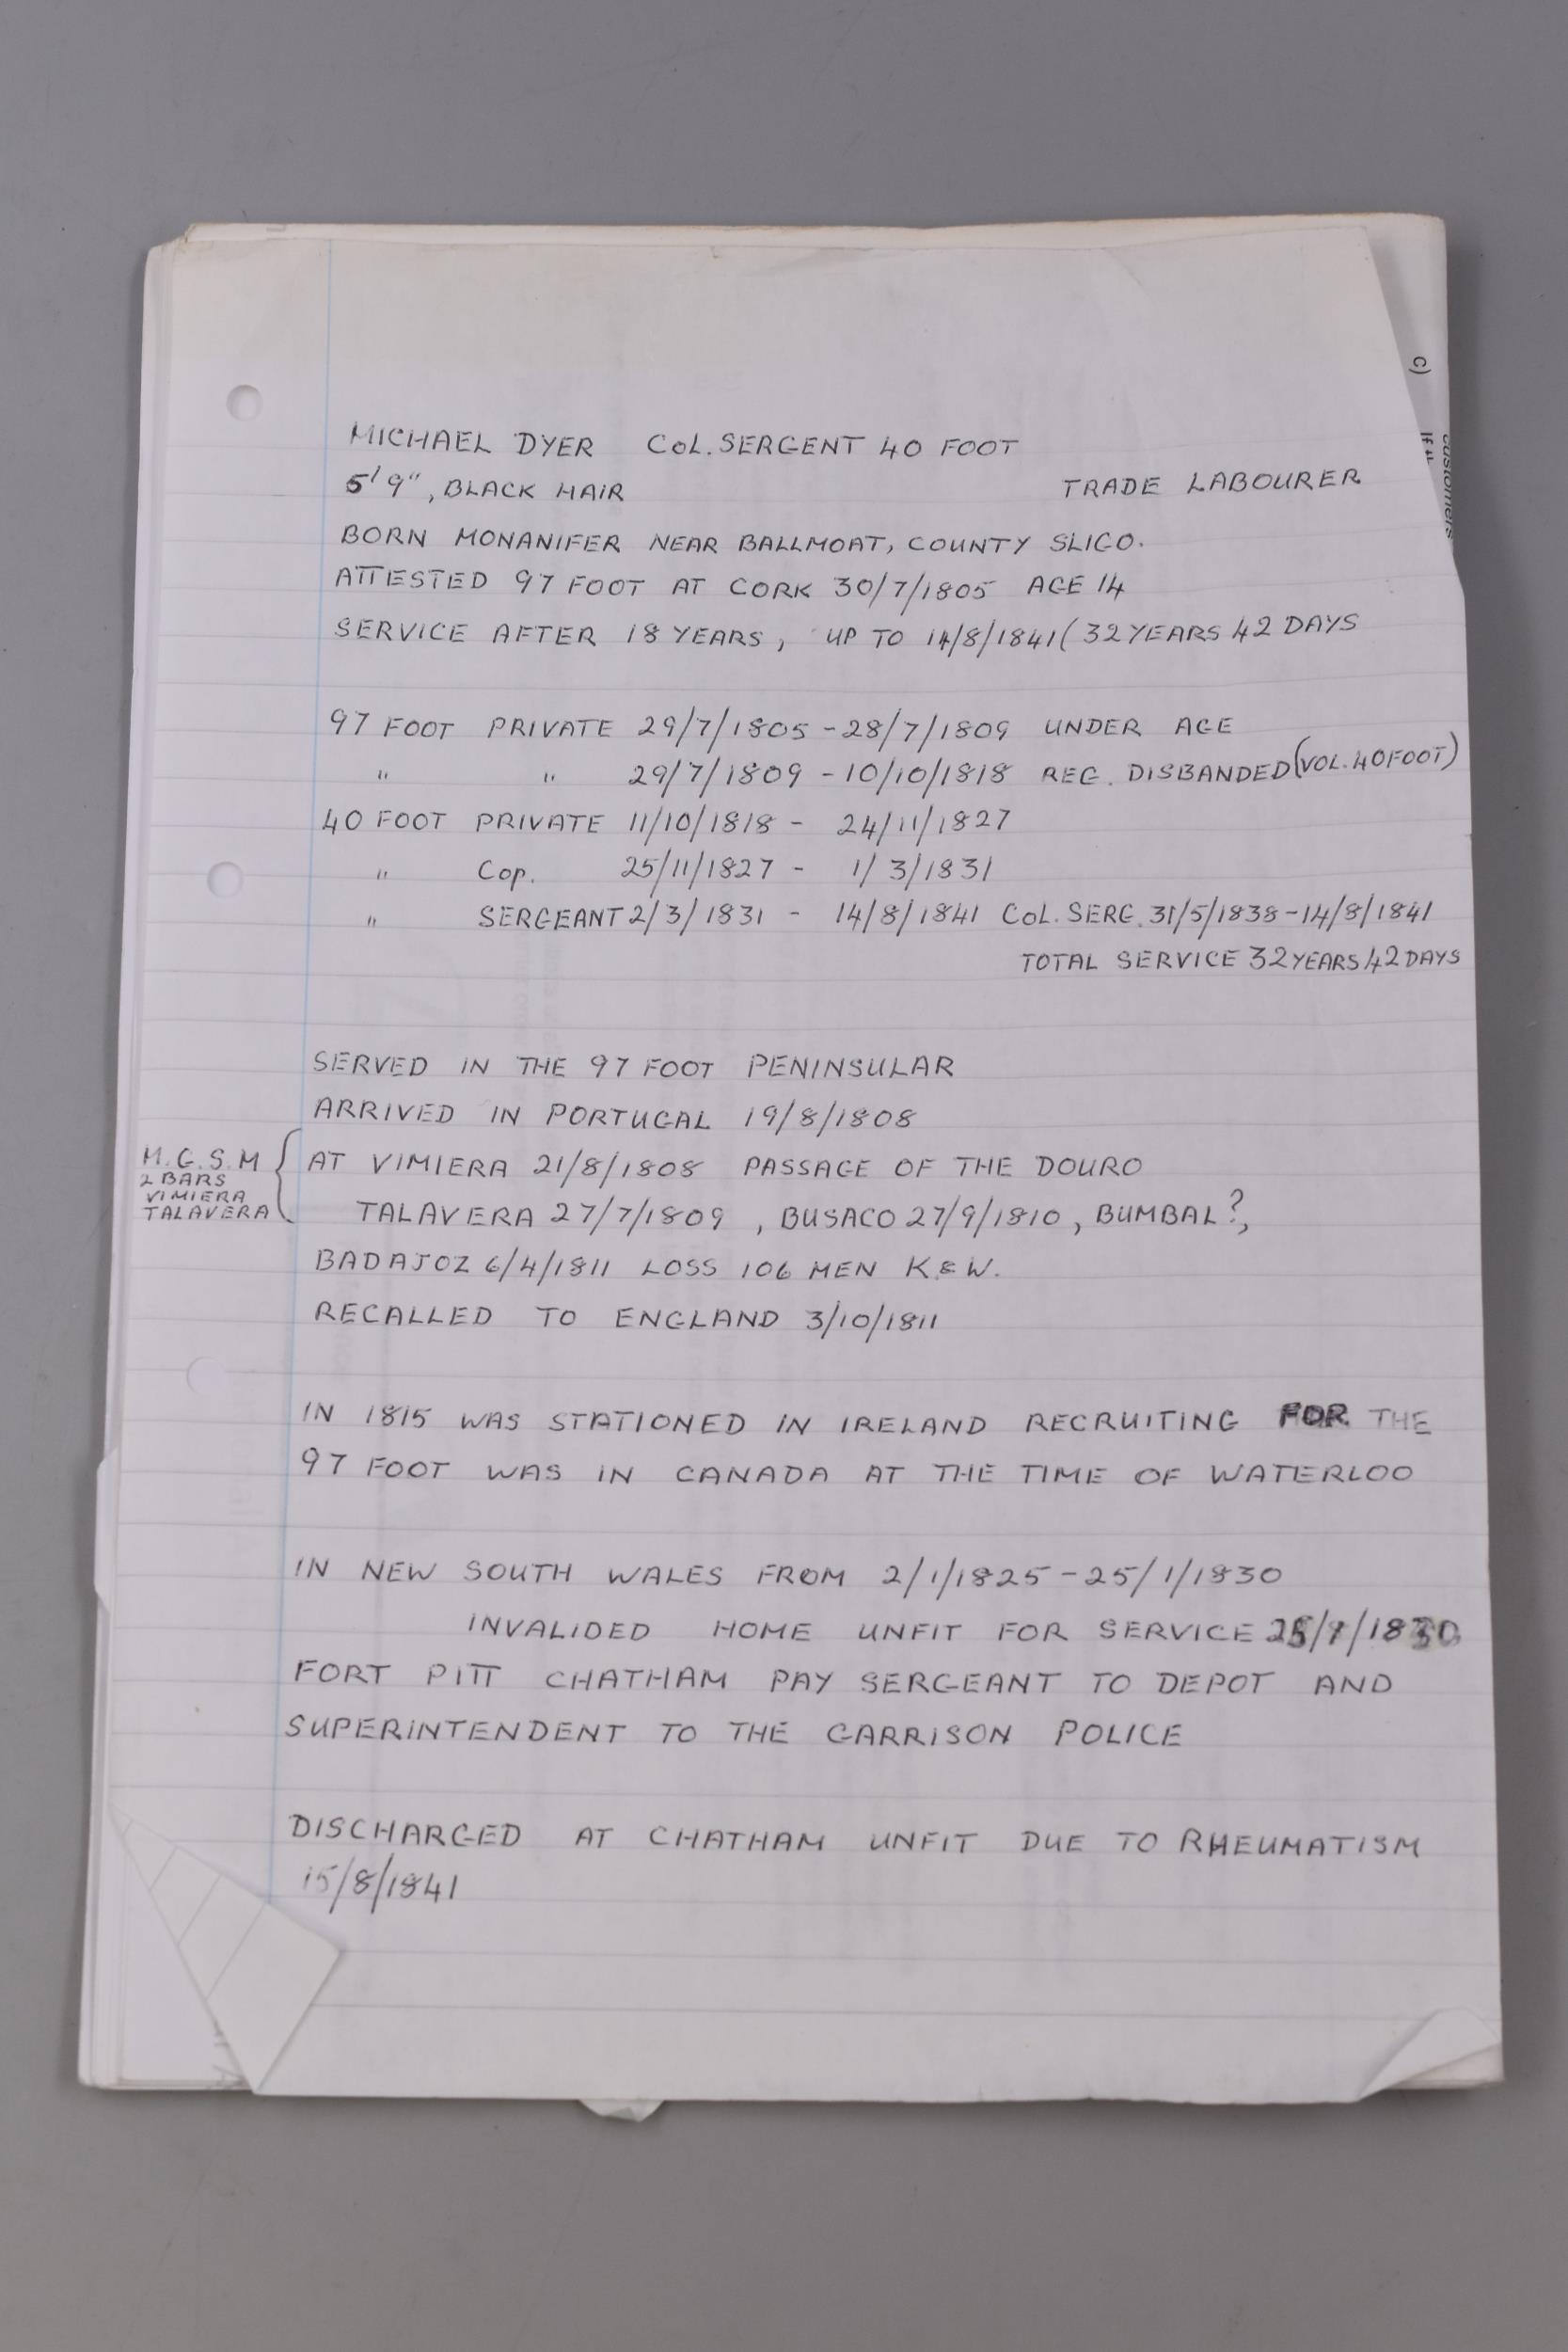 MICHAEL DYER COL. SERGENT 40 FOOT
5'9", BLACK HAIR TRADE LABOURER
BORN MONANIFER NEAR BALLMOAT, COUNTY SLIGO.
ATTESTED 97 FOOT AT CORK 30/7/1805 AGE 14
SERVICE AFTER 18 YEARS, UP TO 14/8/1841 (32 YEARS 42 DAYS
97 FOOT PRIVATE 29/7/1805 - 28/7/1809 UNDER AGE
" " 29/7/1809 - 10/10/1818 REG. DISBANDED (VOL. 40 FOOT)
40 FOOT PRIVATE 11/10/1818 - 24/11/1827
" Cop. 25/11/1827 - 1/3/1831
" SERGEANT 2/3/1831 - 14/8/1841 COL. SERG. 31/5/1838 - 14/8/1841
TOTAL SERVICE 32 YEARS 42 DAYS
SERVED IN THE 97 FOOT PENINSULAR
ARRIVED IN PORTUGAL 19/8/1808
M.G.S.M
2 BARS
VIMIERA
TALAVERA
AT VIMIERA 21/8/1808 PASSAGE OF THE DOURO
TALAVERA 27/7/1809, BUSACO 27/9/1810, BUMBAL?,
BADAJOZ 6/4/1811 LOSS 106 MEN K & W.
RECALLED TO ENGLAND 3/10/1811
IN 1815 WAS STATIONED IN IRELAND RECRUITING FOR THE
97 FOOT WAS IN CANADA AT THE TIME OF WATERLOO
IN NEW SOUTH WALES FROM 2/1/1825 - 25/1/1830
INVALIDED HOME UNFIT FOR SERVICE
FORT PITT CHATHAM PAY SERGEANT TO DEPOT AND
SUPERINTENDENT TO THE GARRISON POLICE
DISCHARGED AT CHATHAM UNFIT DUE TO RHEUMATISM
15/8/1841
c)
customers